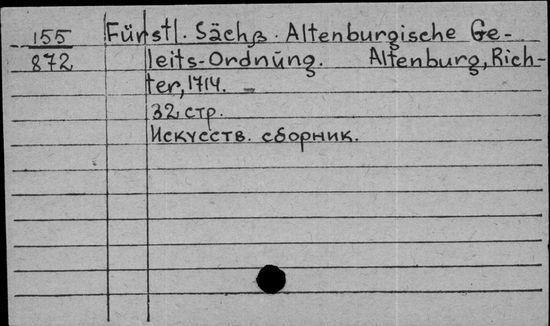 155 Fürstl. Sächß. Altenburgische Ge-
872 leits-Ordnŭng. Altenburg, Rich-
ter, 1714. –
32 стр.
Искусств. сборник.